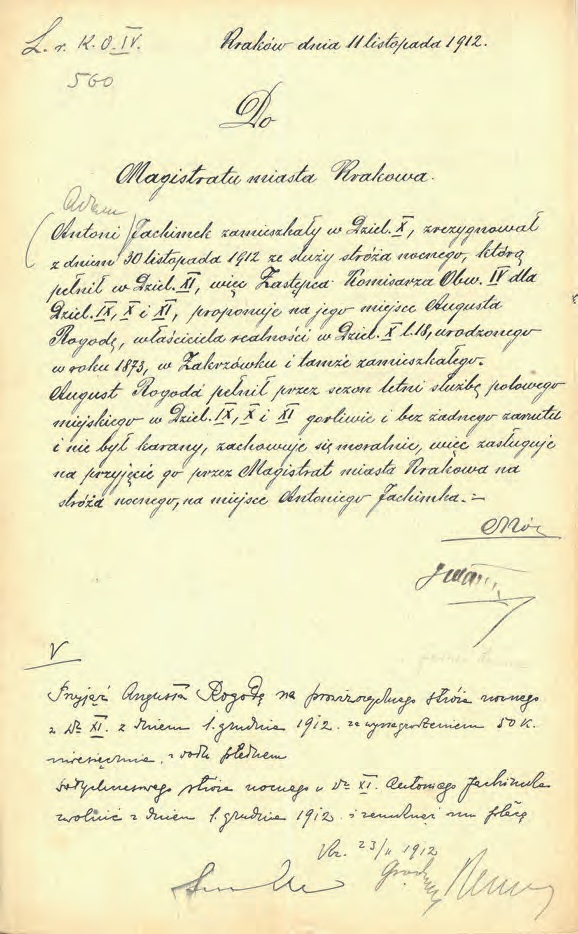 L. r. K. O. IV.
560
Kraków dnia 11 listopada 1912.
Do
Magistratu miasta Krakowa.
Adam
(Antoni) Jachimek zamieszkały w Dziel. X, zrezygnował
z dniem 30 listopada 1912 ze służy stróża nocnego, którą
pełnił w Dziel. XI, więc Zastępca Komisarza Obw. IV dla
Dziel. IX, X i XI, proponuje na jego miejsce Augusta
Rogodę, właściciela realności w Dziel. X l. 18, urodzonego
w roku 1873, w Zakrzówku i tamże zamieszkałego.
August Rogoda pełnił przez sezon letni służbę polowego
miejskiego w Dziel. IX, X i XI gorliwie i bez żadnego zarzutu
i nie był karany, zachowuje się moralnie, więc zasługuje
na przyjęcie go przez Magistrat miasta Krakowa na
stróża nocnego, na miejsce Antoniego Jachimka.=
V
Przyjąć Augusta Rogodę na prowizorycznego stróża nocnego
z Dz XI. z dniem 1. grudnia 1912. za wynagrodzeniem 50 K.
miesięcznie
dotychczasowego stróża nocnego w Dz XI. Antoniego Jachimka
zwolnić z dniem 1. grudnia 1912. i zamknąć mu płacę
Kr. 23/11 1912